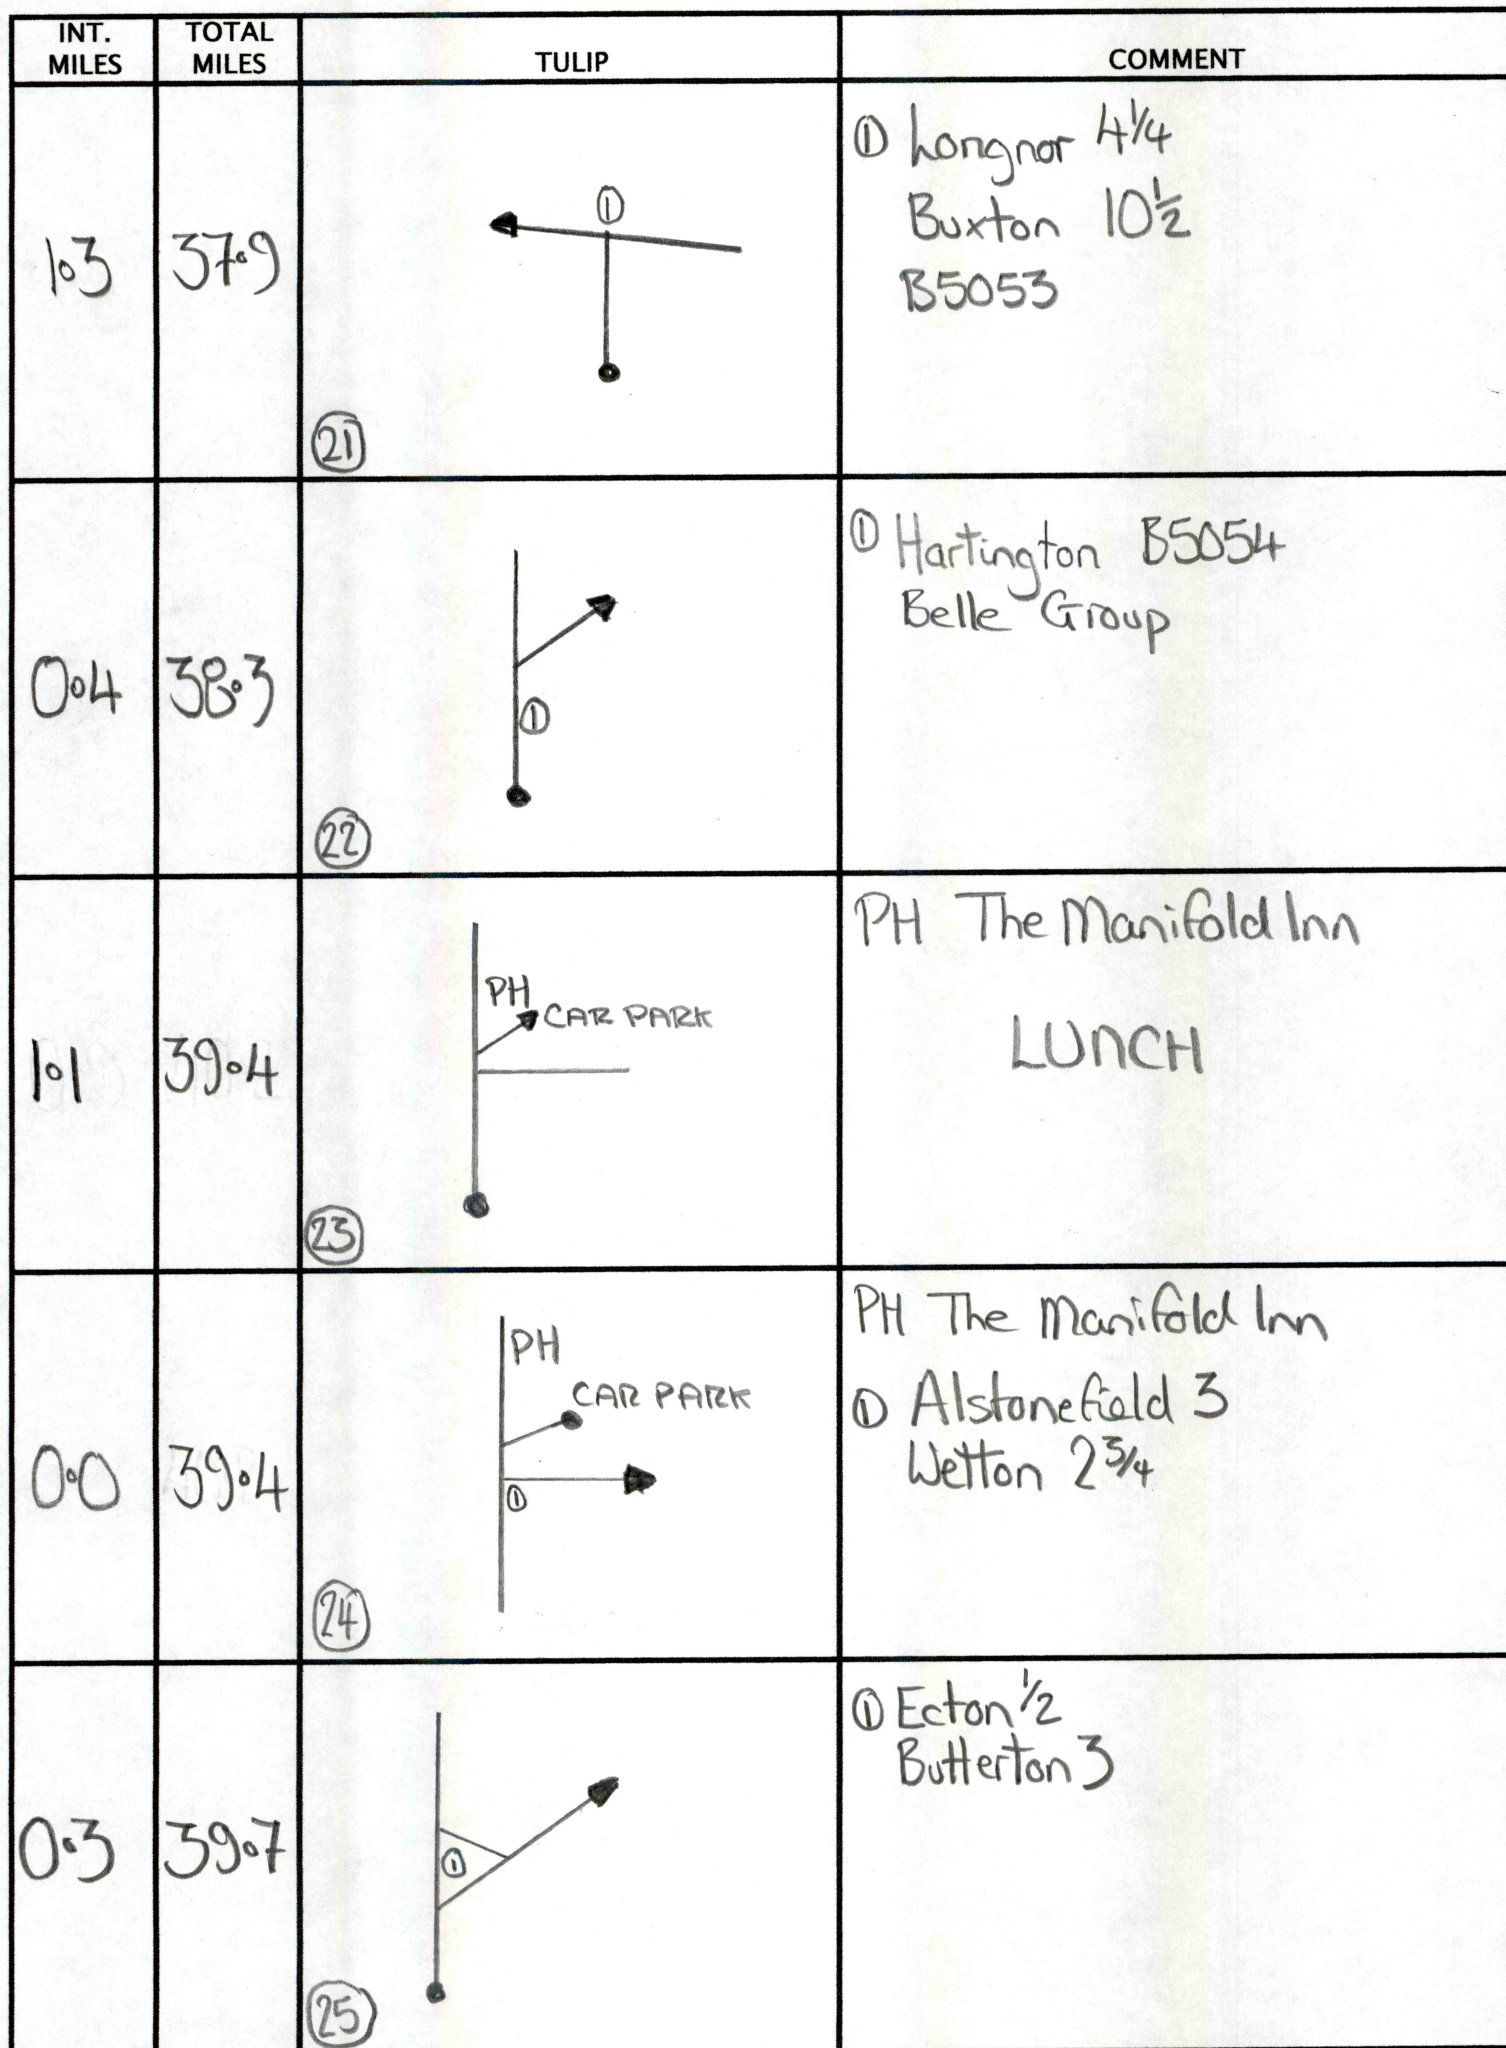 INT. MILES TOTAL MILES TULIP COMMENT
1.3 37.9
①
21
① Longnor 4¼
Buxton 10½
B5053
0.4 38.3
①
22
① Hartington B5054
Belle Group
1.1 39.4
PH
CAR PARK
23
PH The Manifold Inn
LUNCH
0.0 39.4
PH
CAR PARK
①
24
PH The Manifold Inn
① Alstonefield 3
Wetton 2¾
0.3 39.7
①
25
① Ecton ½
Butterton 3